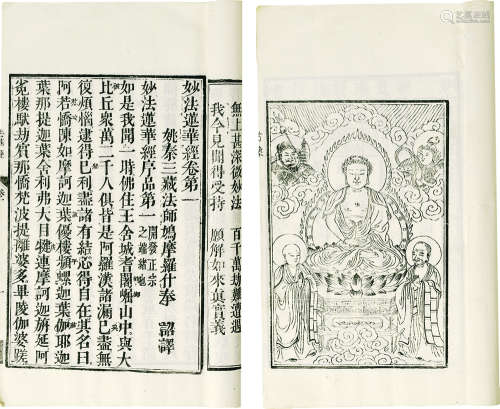 無上甚深微妙法　百千萬劫難遭遇
我今見聞得受持　願解如來眞實義
妙法蓮華經卷第一
姚秦三藏法師鳩摩羅什奉　詔譯
妙法蓮華經序品第一
如是我聞一時佛住王舍城耆闍崛山中與大
比丘衆萬二千人俱皆是阿羅漢諸漏已盡無
復煩惱逮得己利盡諸有結心得自在其名曰
阿若憍陳如摩訶迦葉優樓頻螺迦葉伽耶迦
葉那提迦葉舍利弗大目犍連摩訶迦旃延阿
㝹樓馱劫賓那憍梵波提離婆多畢陵伽婆蹉